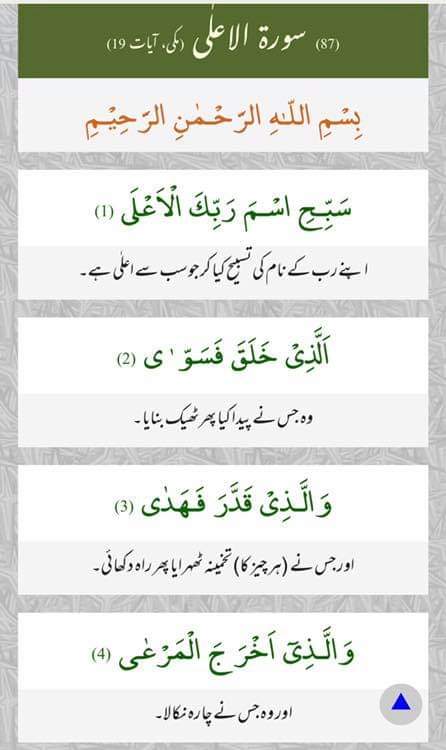 (87) سورۃ الاعلٰی (مکی، آیات 19)
بِسْمِ اللّـٰهِ الرَّحْـمٰنِ الرَّحِيْـمِ
سَبِّـحِ اسْـمَ رَبِّكَ الْاَعْلَى (1)
اپنے رب کے نام کی تسبیح کیا کر جو سب سے اعلٰی ہے۔
اَلَّـذِىْ خَلَقَ فَسَوّ ٰ ى (2)
وہ جس نے پیدا کیا پھر ٹھیک بنایا۔
وَالَّـذِىْ قَدَّرَ فَـهَدٰى (3)
اور جس نے (ہر چیز کا) تخمینہ ٹھہرایا پھر راہ دکھائی۔
وَالَّـذِىٓ اَخْرَ جَ الْمَرْعٰى (4)
اور وہ جس نے چارہ نکالا۔